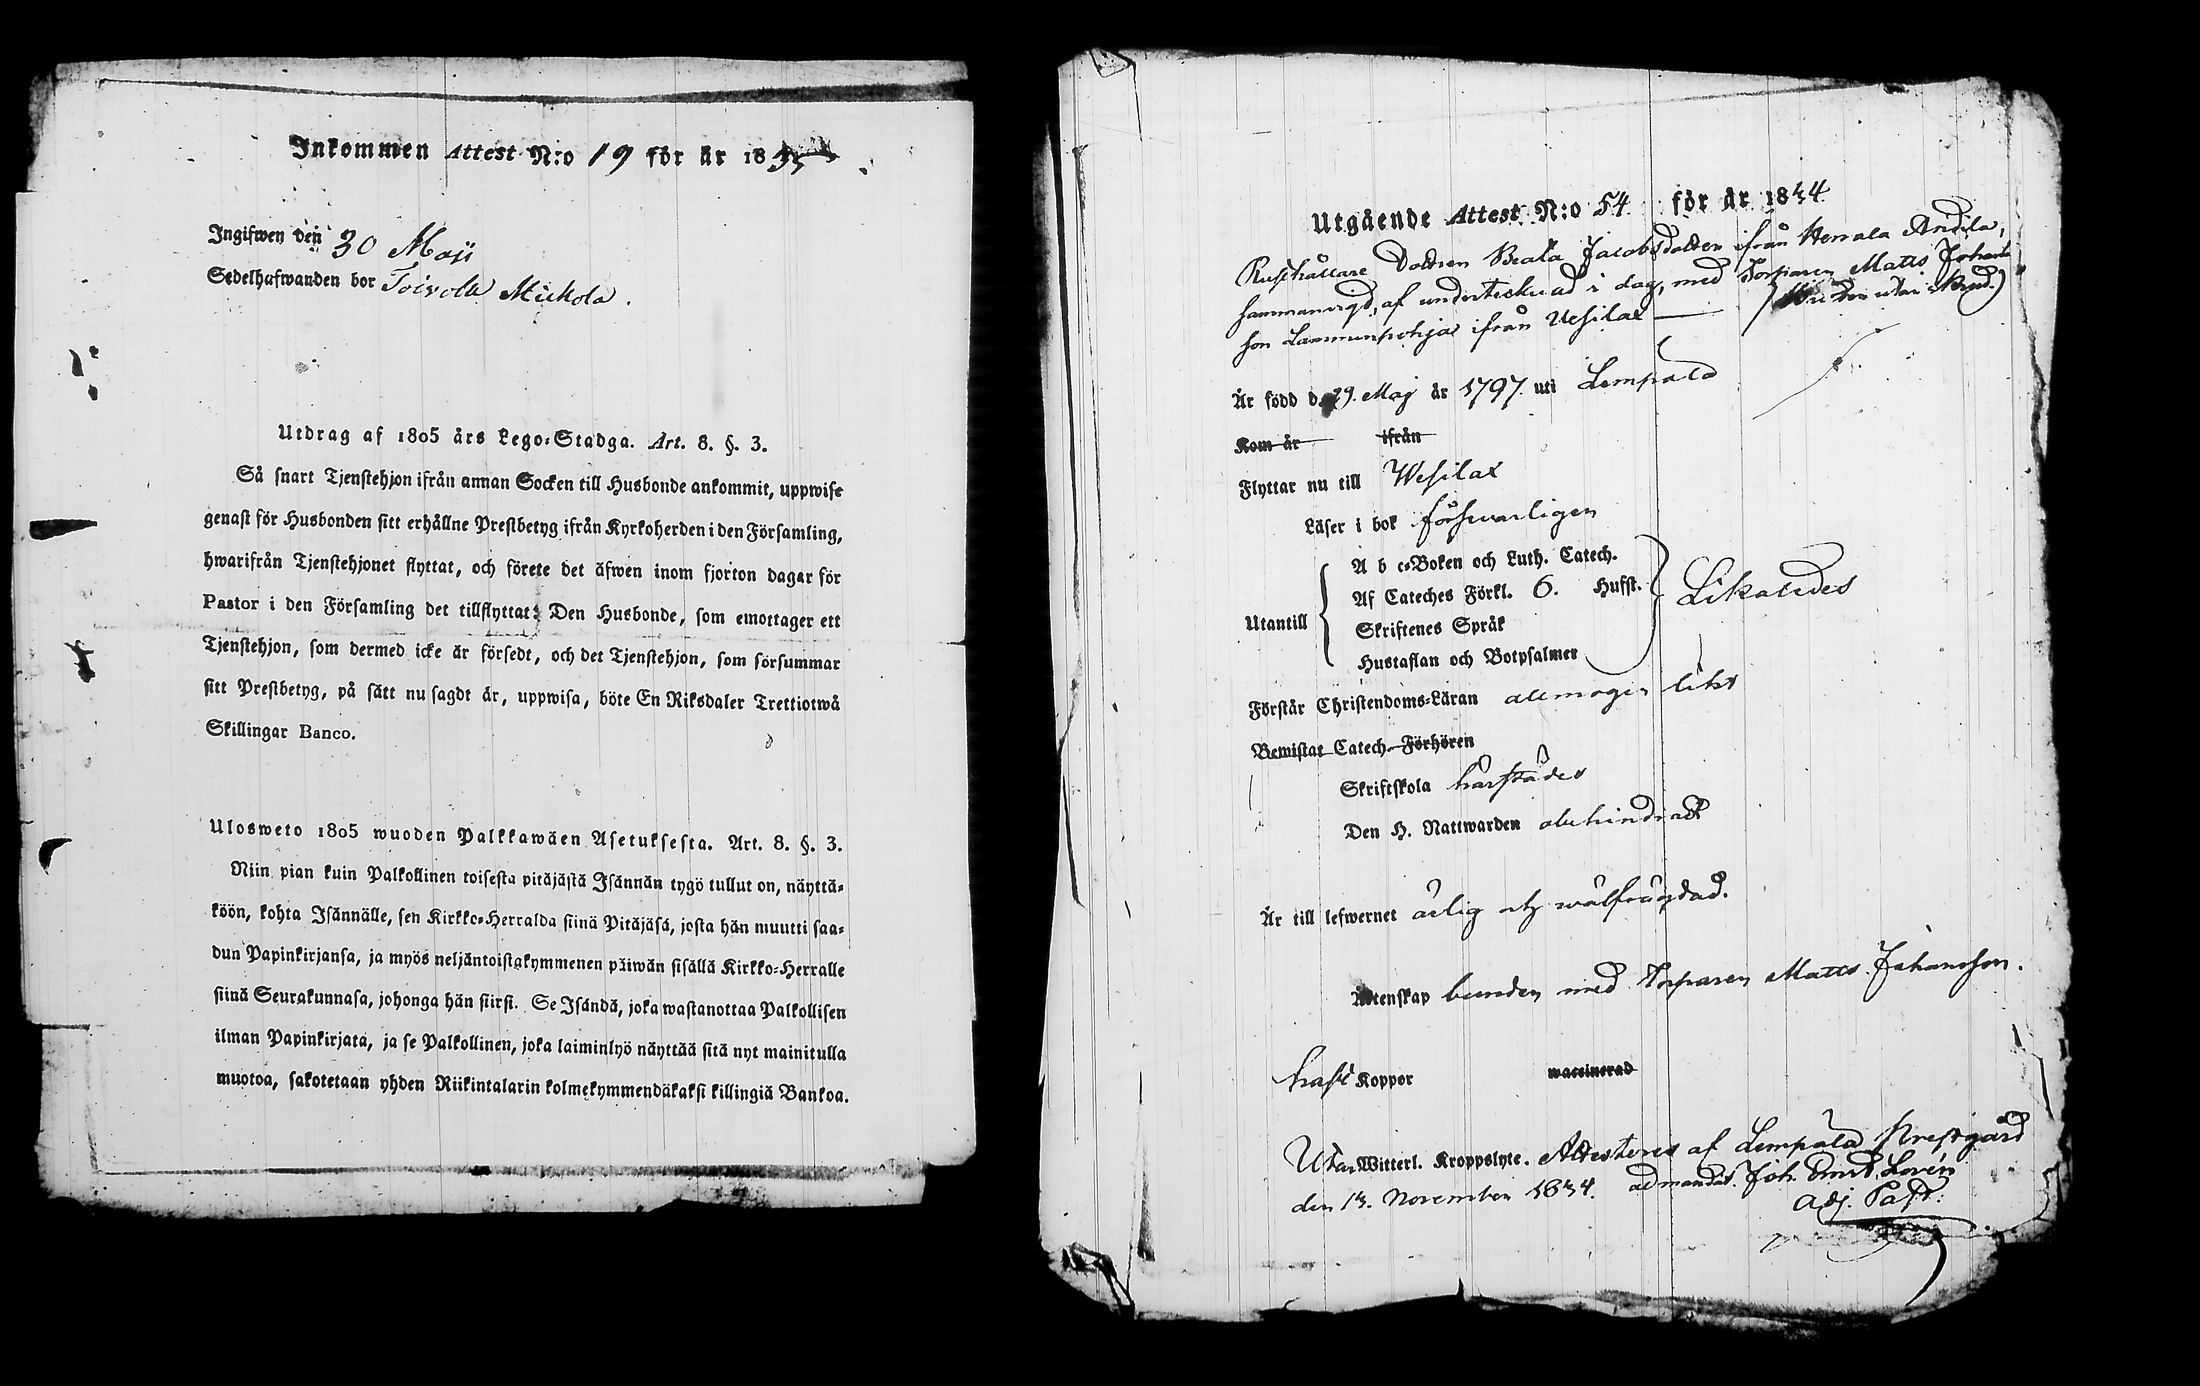 Inkommen Attest N:o 19 för år 1835
Ingifwen den 30 Maji
Sedelhafwanden bor Toivola Mickola.
Utdrag af 1805 års Lego-Stadga. Art. 8. §. 3.
Så snart Tjenstehjon ifrån annan Socken till Husbonde ankommit, uppwise
genast för Husbonden sitt erhållne Prestbetyg ifrån Kyrkoherden i den Församling,
hwarifrån Tjenstehjonet flyttat, och förete det äfwen inom fjorton dagar för
Pastor i den Församling det tillflyttat: Den Husbonde, som emottager ett
Tjenstehjon, som dermed icke är försedt, och det Tjenstehjon, som försummar
sitt Prestbetyg, på sätt nu sagdt är, uppwisa, böte En Riksdaler Trettiotwå
Skillingar Banco.
Ulosweto 1805 wuoden Palkkawäen Asetuksesta. Art. 8. §. 3.
Niin pian kuin Palkollinen toisesta pitäjästä Isännän tygö tullut on, näyttä-
köön, kohta Isännälle, sen Kirkko-Herralda siinä Pitäjäsä, josta hän muutti saa-
dun Papinkirjansa, ja myös neljäntoistakymmenen päiwän sisällä Kirkko-Herralle
siinä Seurakunnasa, johonga hän siirsi. Se Isändä, joka wastanottaa Palkollisen
ilman Papinkirjata, ja se Palkollinen, joka laiminlyö näyttää sitä nyt mainitulla
muotoa, sakotetaan yhden Riikintalarin kolmekymmendäkaksi killingiä Bankoa.
Utgående Attest N:o 54. för år 1834.
Rusthållare Dottren Beata Jacobsdotter ifrån Herrala Andila,
sammanvigd, af undertecknad i dag, med Torparen Matts Johans
son Lammenpohja ifrån Wesilax
Är född d. 29. Maj år 1797. uti Lempälä
Kom år ifrån
Flyttar nu till Wesilax
Läser i bok försvarligen
A b c-Boken och Luth. Catech.
Af Cateches Förkl. 6. Hufst.
Utantill Likaledes
Skriftenes Språk
Hustaflan och Botpsalmer
Förstår Christendoms-Läran allmogen likt
Bewistat Catech. Förhören
Skriftskola härstädes
Den H. Nattwarden obehindrad
Är till lefwernet ärlig och wälfrägdad.
Äktenskap bunden med Torparen Matts Johansson.
haft Koppor waccinerad
Utan Witterl. Kroppslyte. Attesteres af Lempälä Prestgård
den 13. November 1834. ad mandat. Joh. Ernst Lovén
Adj. Past.